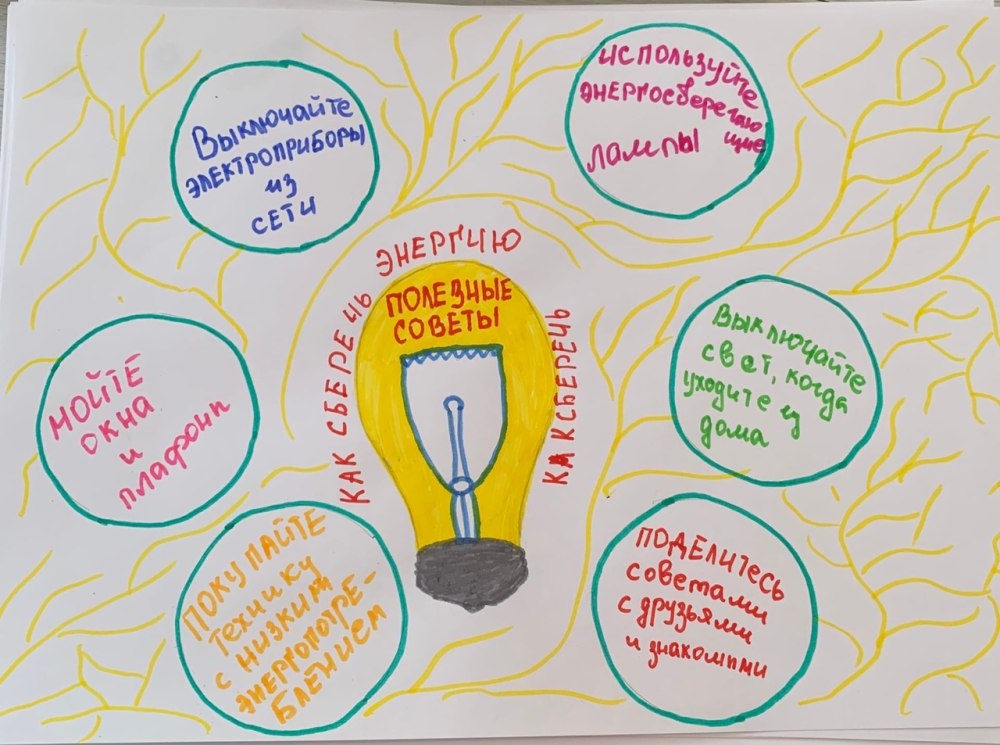 Выключайте
электроприборы
из
сети
используйте
энергосберегаю
щие
лампы
КАК СБЕРЕЧЬ ЭНЕРГИЮ
КАК СБЕРЕЧЬ
ПОЛЕЗНЫЕ
СОВЕТЫ
МОЙТЕ
окна
и
плафоны
Выключайте
свет, когда
уходите из
дома
ПОКУПАЙТЕ
технику
с низким
энергопотре-
блением
ПОДЕЛИТЕСЬ
советами
с друзьями
и знакомыми